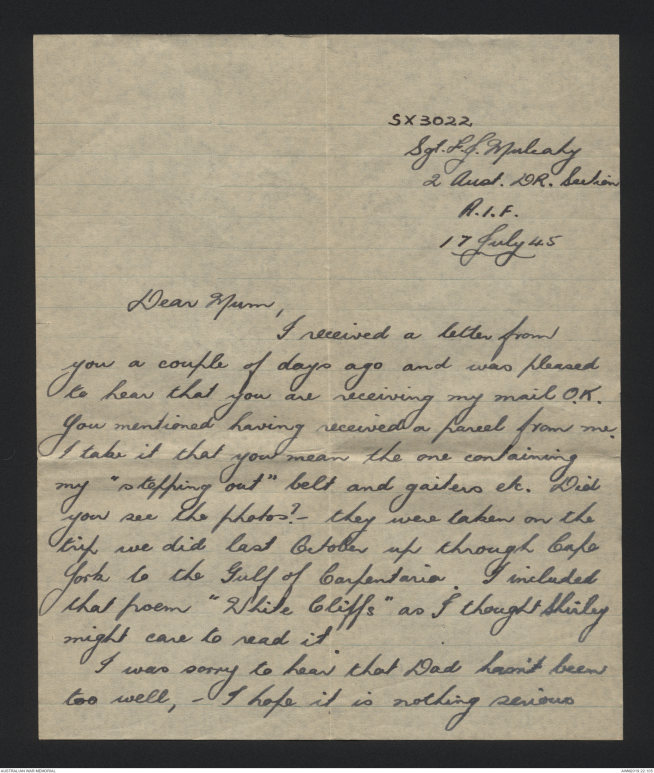 SX3022
Sgt. L.J. Mulcahy
2 Aust. DR. Section
A.I.F.
17 July 45
Dear Mum,
I received a letter from
you a couple of days ago and was pleased
to hear that you are receiving my mail O.K.
You mentioned having received a parcel from me.
I take it that you mean the one containing
my "stepping out" belt and gaiters etc. Did
you see the photos? - they were taken on the
trip we did last October up through Cape
York to the Gulf of Carpentaria. I included
that poem "White Cliffs" as I thought Shirley
might care to read it
I was sorry to hear that Dad hasn't been
too well, - I hope it is nothing serious
AUSTRALIAN WAR MEMORIAL